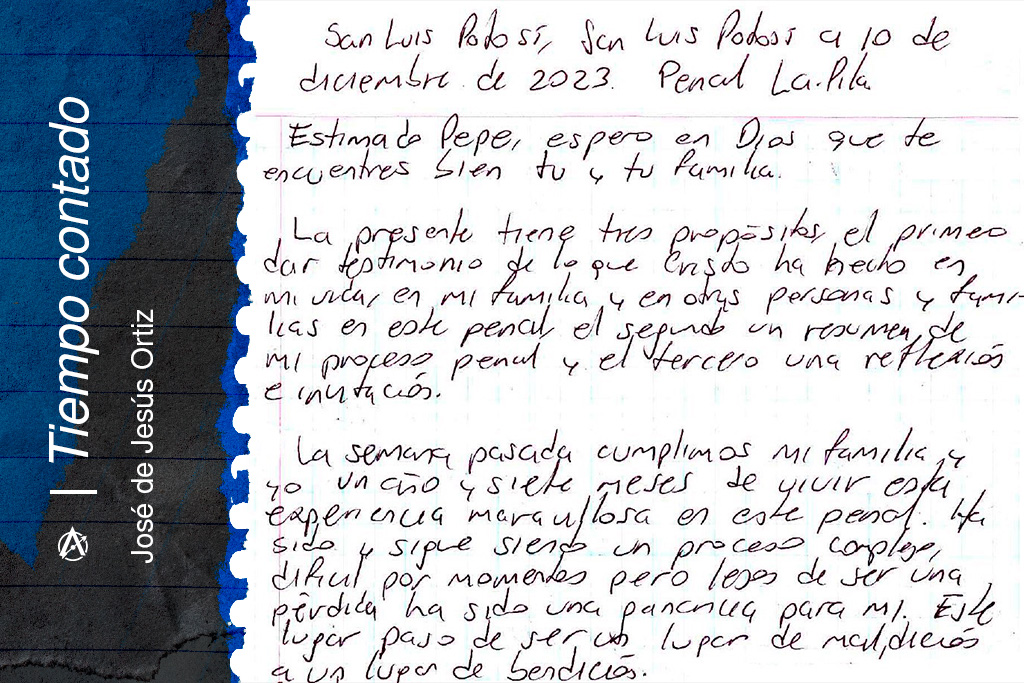 Tiempo contado
José de Jesús Ortiz
San Luis Potosí, San Luis Potosí a 10 de
diciembre de 2023. Penal La Pila
Estimado Pepe, espero en Dios que te
encuentres bien tu y tu familia.
La presente tiene tres propósitos, el primero
dar testimonio de lo que Cristo ha hecho en
mi vida, en mi familia y en otras personas y fami-
lias en este penal, el segundo un resumen de
mi proceso penal y el tercero una reflexión
e invitación.
La semana pasada cumplimos mi familia y
yo un año y siete meses de vivir esta
experiencia maravillosa en este penal. Ha
sido y sigue siendo un proceso complejo,
dificil por momentos pero lejos de ser una
pérdida ha sido una ganancia para mi. Este
lugar paso de ser un lugar de maldición
a un lugar de bendición.